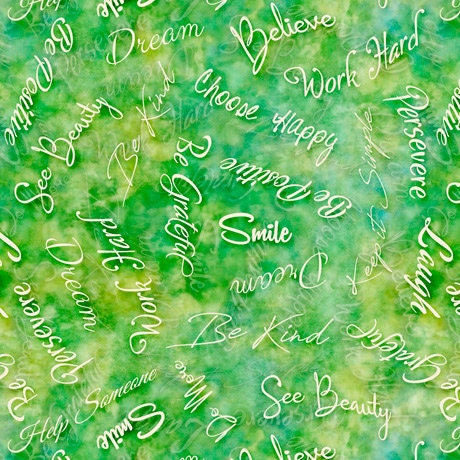 Smile
Dream
Believe
Work Hard
Be Positive
Be Kind
Choose Happy
Persevere
See Beauty
Be Grateful
Be Positive
Smile
Work Hard
Dream
Dream
Laugh
Persevere
Be Kind
Be Grateful
Help Someone
Do More
See Beauty
Smile
Believe